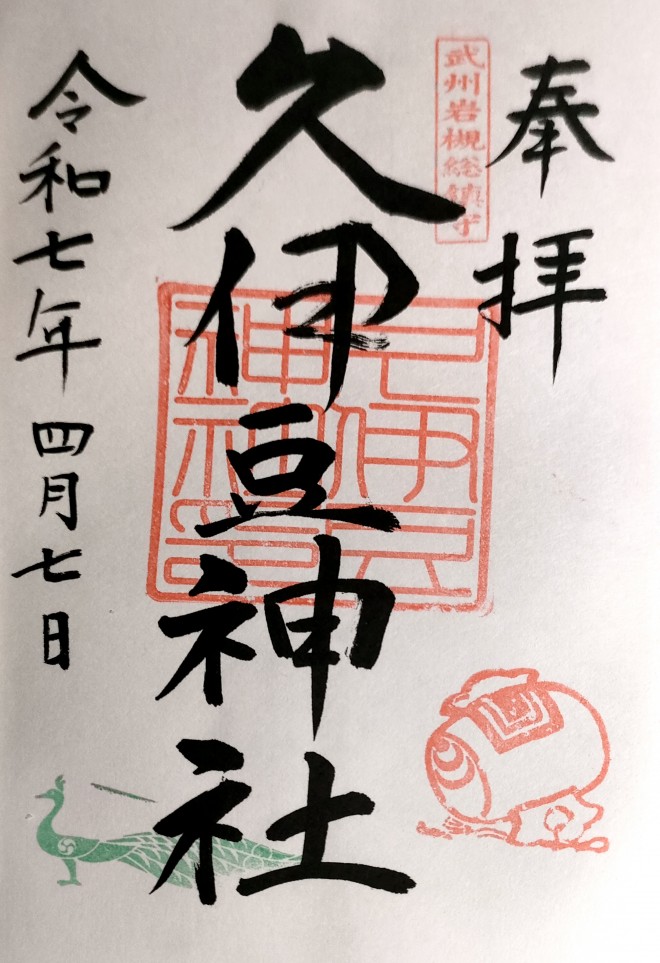 奉拝
武州岩槻総鎮守
久伊豆神社
令和七年四月七日